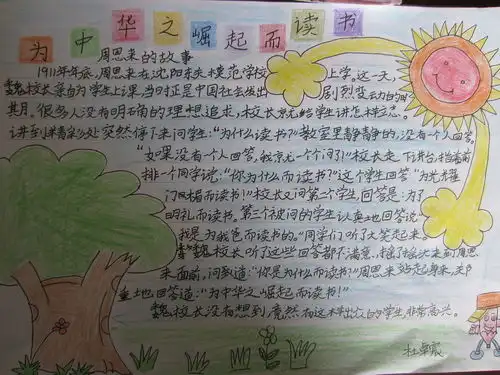 为中华之崛起而读书
周恩来的故事
1911年年底，周恩来在沈阳东关模范学校上学。这一天，
魏校长亲自为学生上课，当时正是中国社会发生剧烈变动的时
期。很多人没有明确的理想追求，校长就给学生讲怎样立志。
讲到精彩处突然停下来问学生："为什么读书？"教室里静静的，没有一个人回答。
"如果没有一个人回答，我就一个个问了！"校长走下讲台，指着前
排一个同学说："你为什么而读书？"这个学生回答："为光耀
门楣而读书！"校长又问第二个学生，回答是：为了
明礼而读书。第三个被问的学生认真地回答说：
我是为我爸而读书的。"同学们听了大笑起来。
魏校长听了这些回答都不满意，摇摇头来到周恩
来面前，问到道："你是为什么而读书？"周恩来站起身来，郑
重地回答道："为中华之崛起而读书！"
魏校长没有想到，竟然有这样出众的学生，非常高兴。